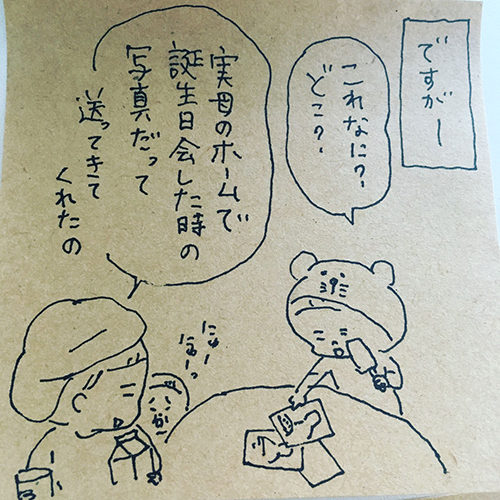 ですがー
これなに？
どこ？
実母のホームで
誕生日会した時の
写真だって
送ってきて
くれたの
にゅー
にゅーっ